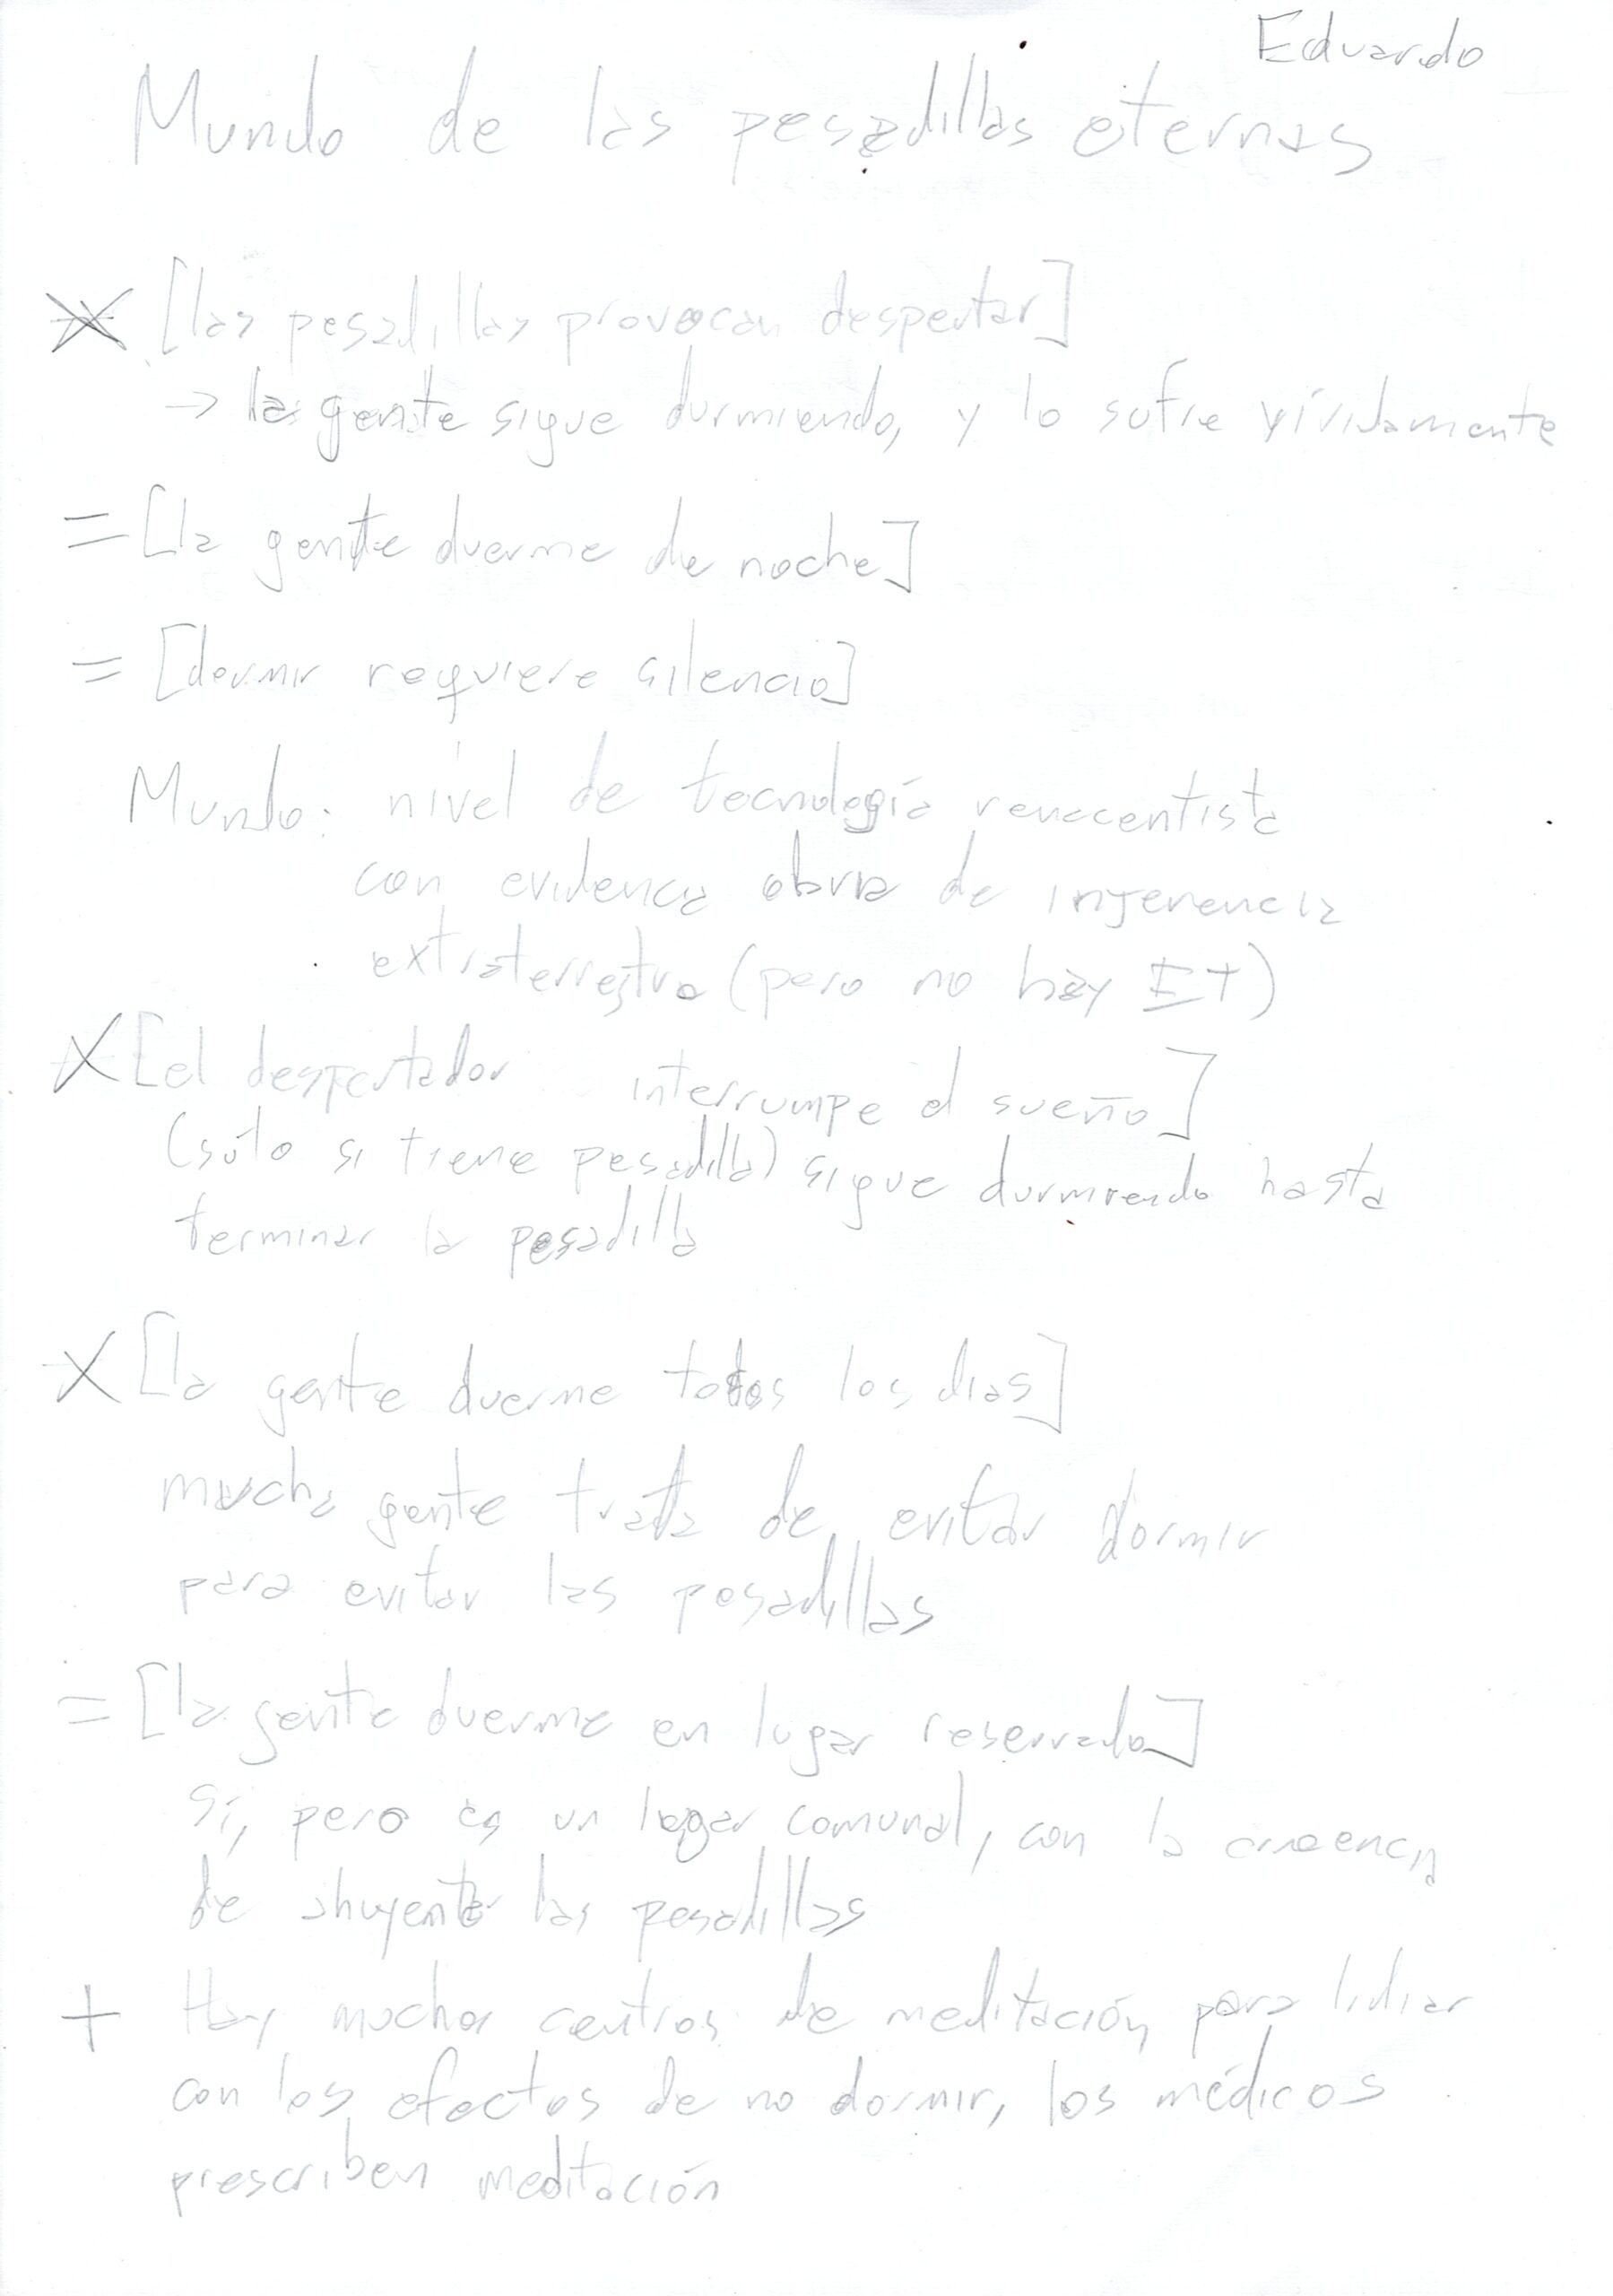 Eduardo
Mundo de las pesadillas eternas
X [las pesadillas provocan despertar]
→ la gente sigue durmiendo, y lo sufre vívidamente
= [la gente duerme de noche]
= [dormir requiere silencio]
Mundo: nivel de tecnología renacentista
con evidencia obvia de injerencia
extraterrestre (pero no hay ET)
X [el despertador interrumpe el sueño]
(sólo si tiene pesadilla) sigue durmiendo hasta
terminar la pesadilla
X [la gente duerme todos los dias]
mucha gente trata de evitar dormir
para evitar las pesadillas
= [la gente duerme en lugar reservado]
Sí, pero es un lugar comunal, con la creencia
de ahuyentar las pesadillas
+ Hay muchos centros de meditación para lidiar
con los efectos de no dormir, los médicos
prescriben meditación